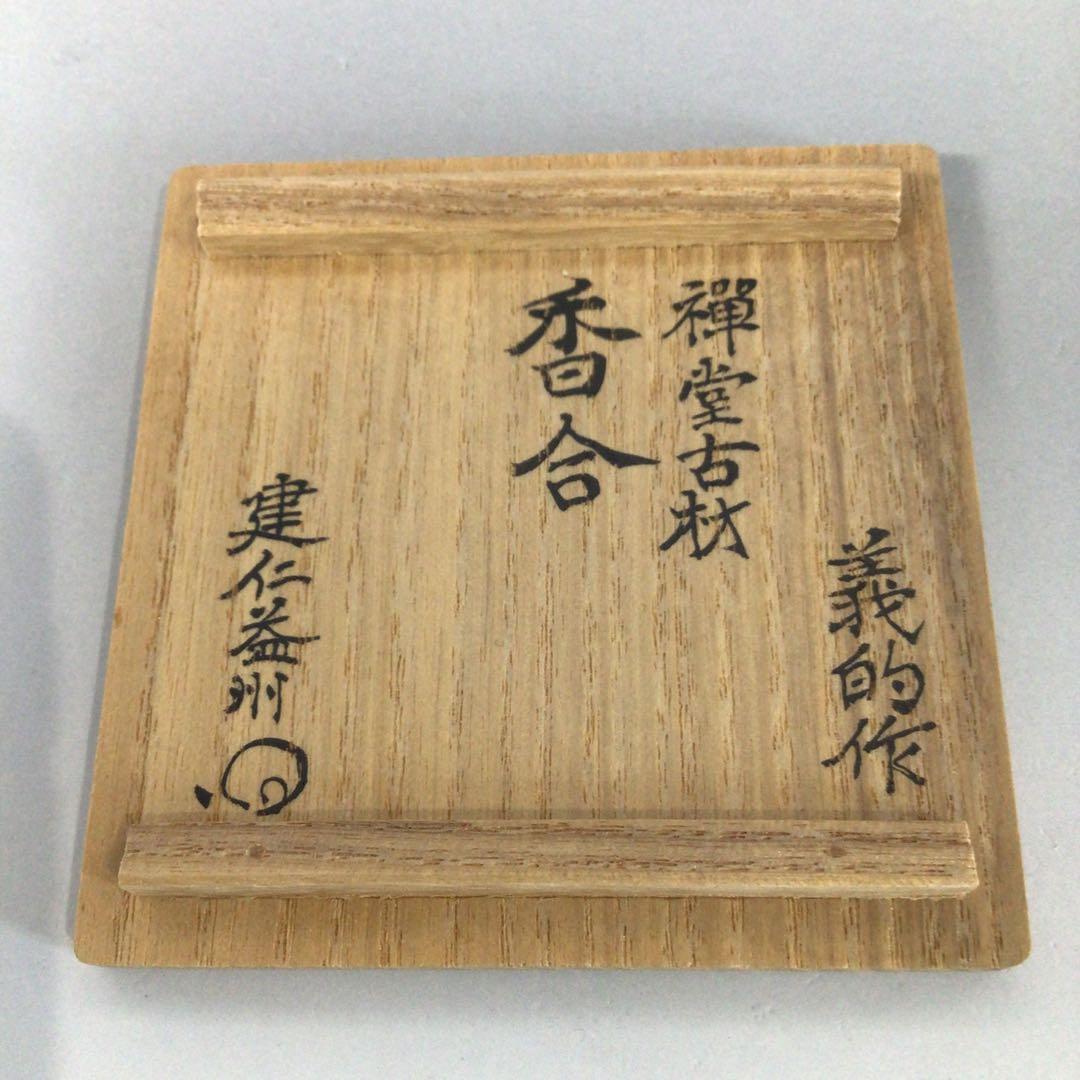 義的作
禪堂古材
香合
建仁益州